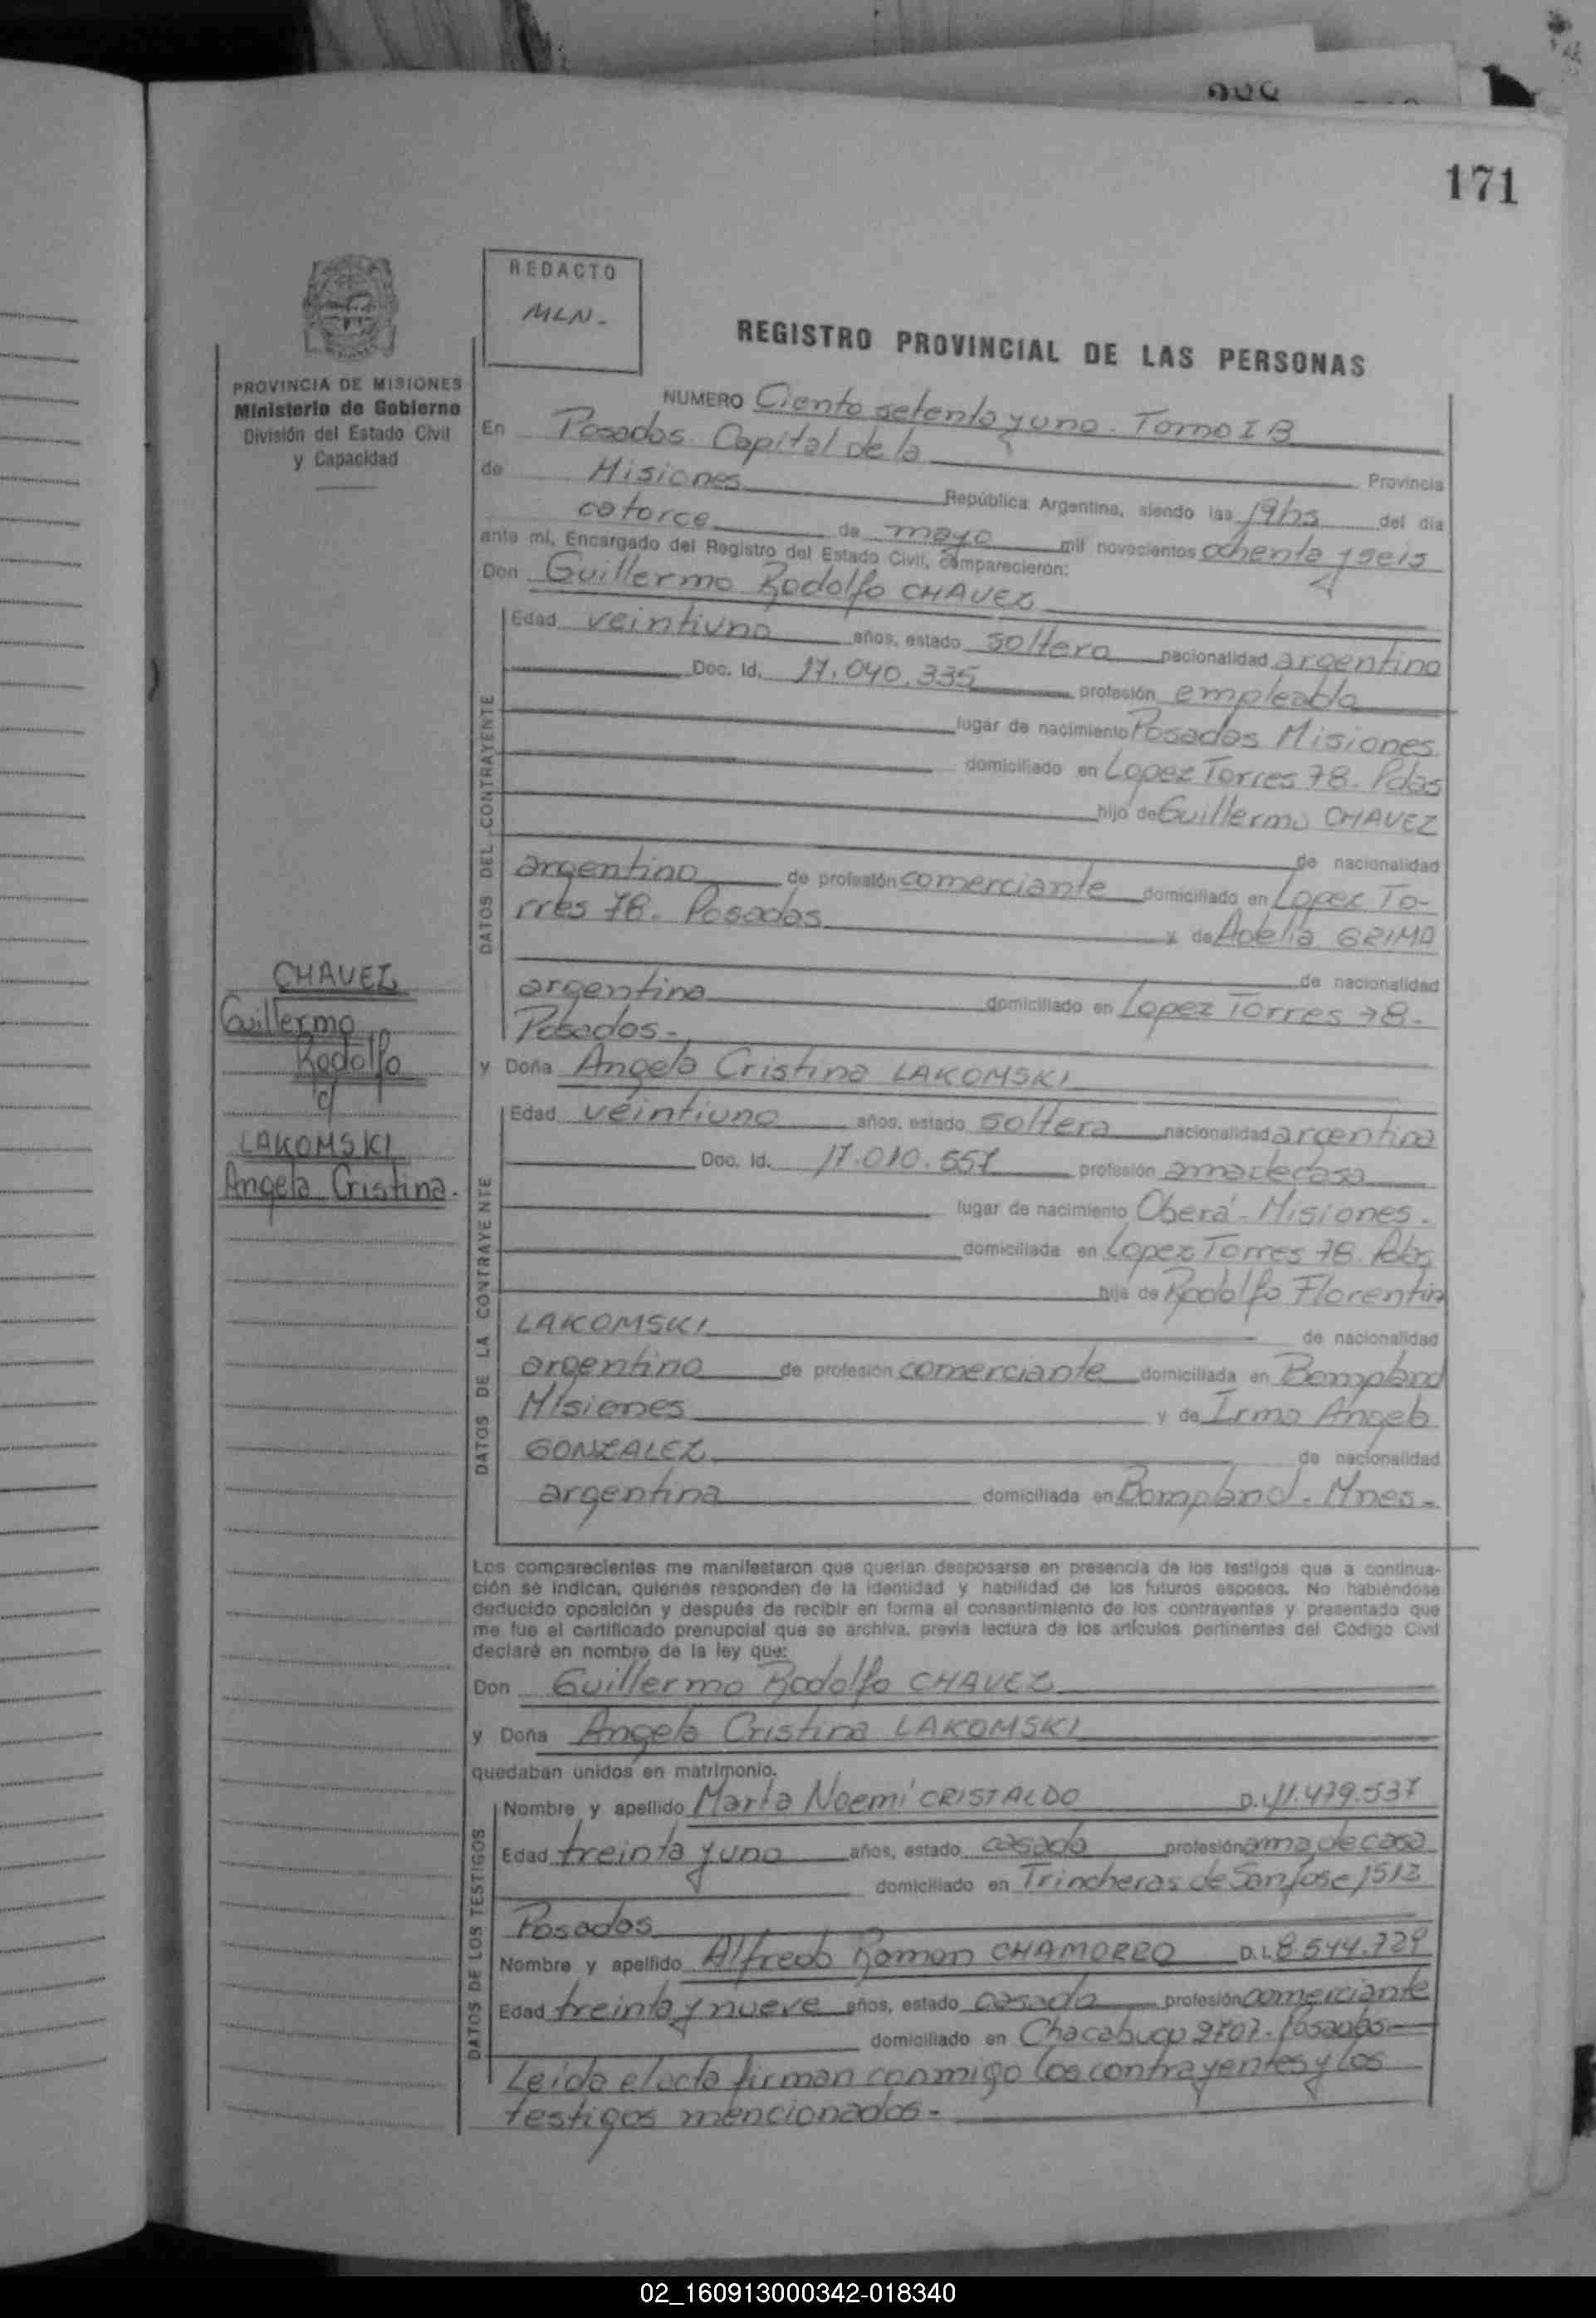 171
REDACTO
MLN-
REGISTRO PROVINCIAL DE LAS PERSONAS
PROVINCIA DE MISIONES
Ministerio de Gobierno
División del Estado Civil
y Capacidad
NUMERO Ciento setenta y uno. Tomo I B
En Posadas. Capital de la Provincia
de Misiones República Argentina, siendo las 19hs del dia
catorce de mayo mil novecientos ochenta y seis
ante mí, Encargado del Registro del Estado Civil, comparecieron:
Don Guillermo Rodolfo CHAVEZ
DATOS DEL CONTRAYENTE
Edad veintiuno años, estado soltero nacionalidad argentino
Doc. Id. 17.040.335 profesión empleado
lugar de nacimiento Posadas Misiones.
domiciliado en Lopez Torres 78. Pdas
hijo de Guillermo CHAVEZ
de nacionalidad
argentino de profesión comerciante domiciliado en Lopez To-
rres 78. Posadas y de Adelia GRIMA
de nacionalidad
argentina domiciliado en Lopez Torres 78-
Posadas-
CHAVEZ
Guillermo
Rodolfo
c/
LAKOMSKI
Angela Cristina.
y Doña Angela Cristina LAKOMSKI
DATOS DE LA CONTRAYENTE
Edad veintiuno años, estado soltera nacionalidad argentina
Doc. Id. 17.010.557 profesión ama de casa
lugar de nacimiento Oberá - Misiones.
domiciliada en Lopez Torres 78. Pdas
hija de Rodolfo Florentin
LAKOMSKI de nacionalidad
argentino de profesión comerciante domiciliada en Bompland
Misiones y de Irma Angela
GONZALEZ de nacionalidad
argentina domiciliada en Bompland. Mnes-
Los comparecientes me manifestaron que querían desposarse en presencia de los testigos que a continua-
ción se indican, quienes responden de la identidad y habilidad de los futuros esposos. No habiéndose
deducido oposición y después de recibir en forma el consentimiento de los contrayentes y presentado que
me fue el certificado prenupcial que se archiva, previa lectura de los artículos pertinentes del Código Civil
declaré en nombre de la ley que:
Don Guillermo Rodolfo CHAVEZ
y Doña Angela Cristina LAKOMSKI
quedaban unidos en matrimonio.
DATOS DE LOS TESTIGOS
Nombre y apellido Marta Noemí CRISTALDO D.I. 11.479.537
Edad treinta y uno años, estado casada profesión ama de casa
domiciliado en Trincheras de San Jose 1513
Posadas
Nombre y apellido Alfredo Ramon CHAMORRO D.I. 8.544.729
Edad treinta y nueve años, estado casado profesión comerciante
domiciliado en Chacabuco 2707- Posadas-
Leida el acta firman conmigo los contrayentes y los
testigos mencionados-
02_160913000342-018340